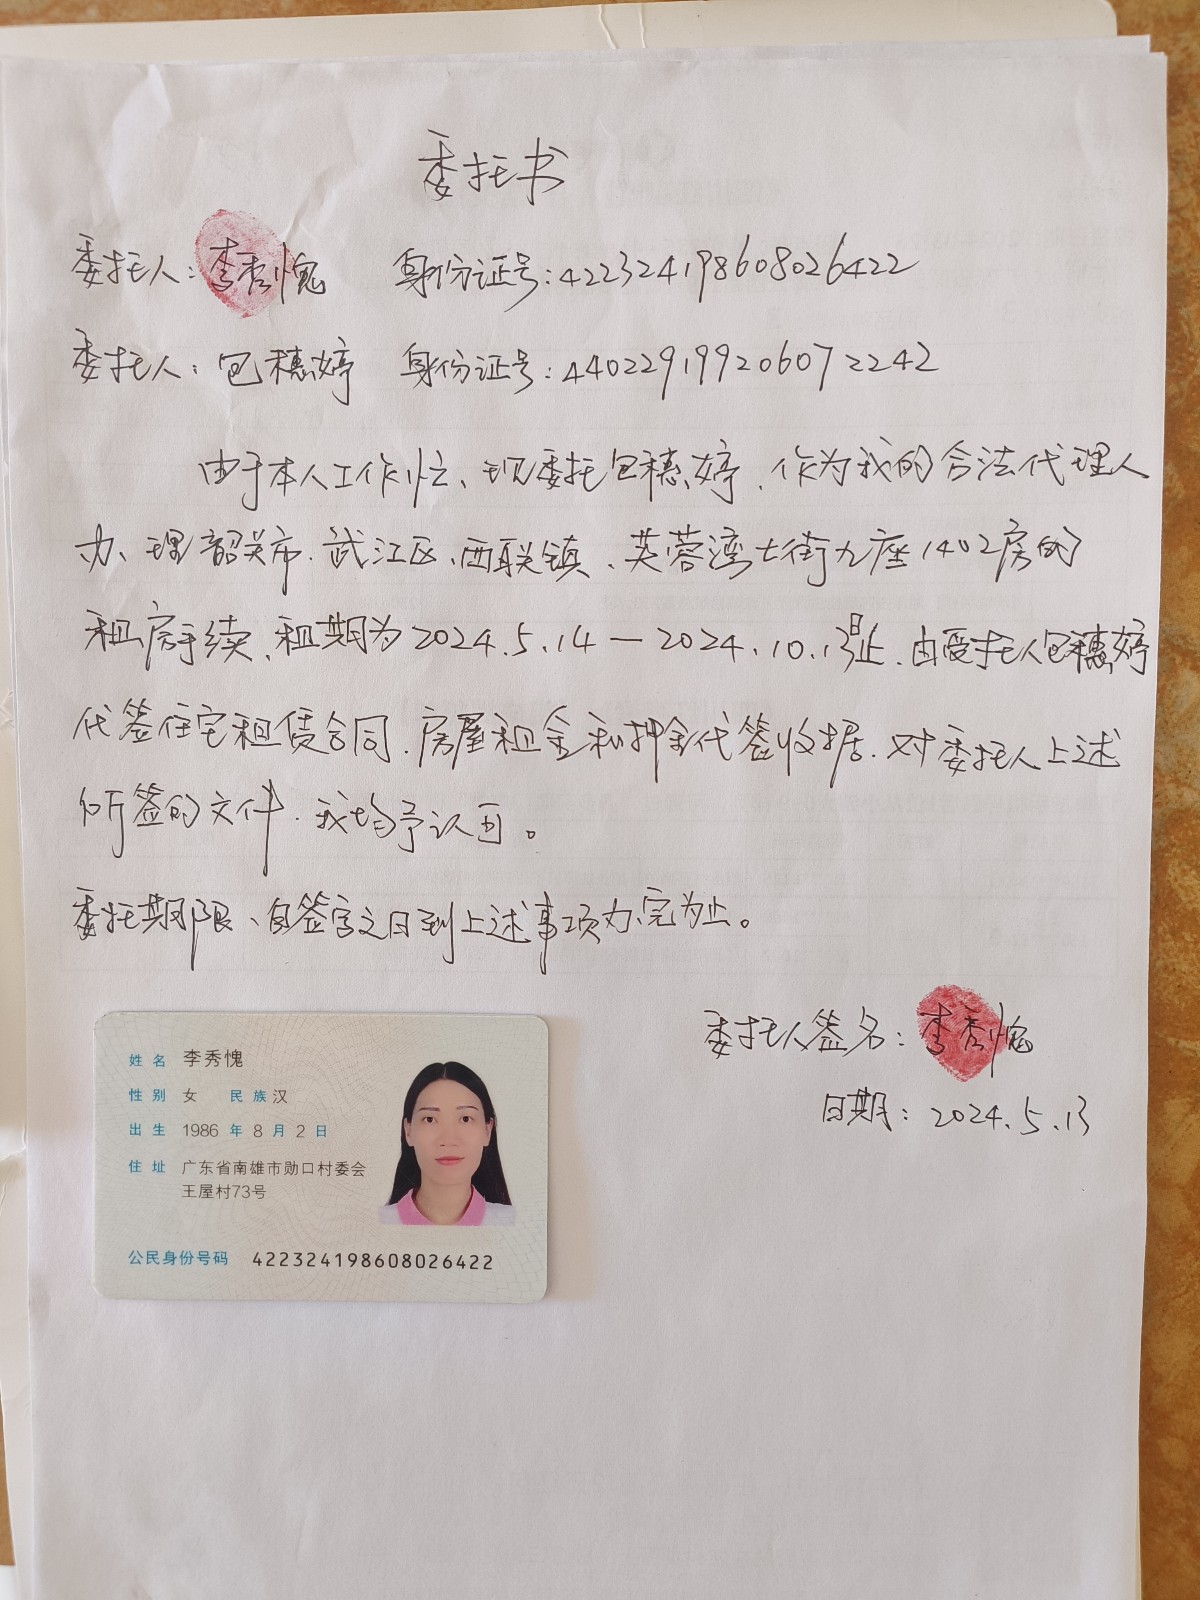 委托书
委托人：李秀愧 身份证号：422324198608026422
委托人：包穗婷 身份证号：440229199206072242
由于本人工作忙、现委托包穗婷、作为我的合法代理人
办、理韶关市、武江区、西联镇、芙蓉湾七街九座1402房的
租房手续、租期为2024.5.14—2024.10.13日止、由受托人包穗婷
代签住宅租赁合同、房屋租金和押金代签收据、对委托人上述
所签的文件、我均予认可。
委托期限、自签字之日到上述事项办完为止。
委托人签名：李秀愧
日期：2024.5.13
姓名 李秀愧
性别 女 民族 汉
出生 1986 年 8 月 2 日
住址 广东省南雄市勋口村委会
王屋村73号
公民身份号码 422324198608026422